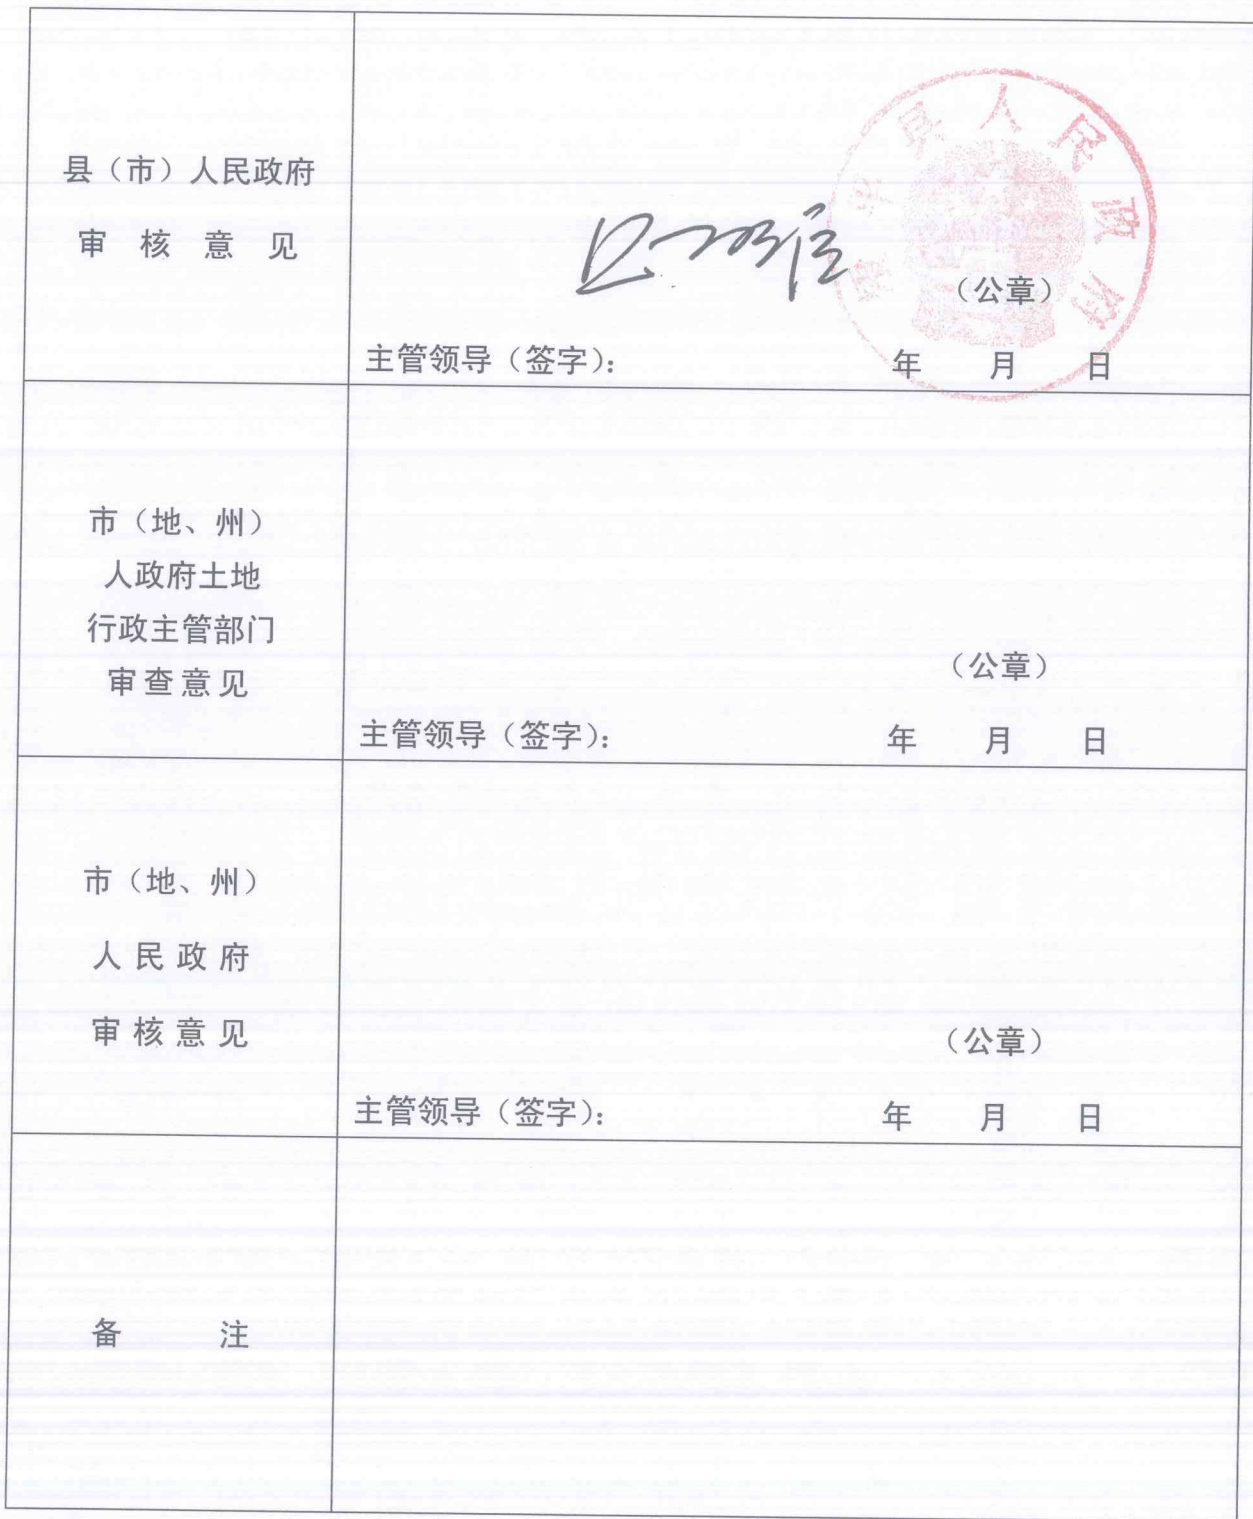 县（市）人民政府
审核意见
县人民政府
（公章）
主管领导（签字）：
年 月 日
市（地、州）
人政府土地
行政主管部门
审查意见
（公章）
主管领导（签字）：
年 月 日
市（地、州）
人民政府
审核意见
（公章）
主管领导（签字）：
年 月 日
备注